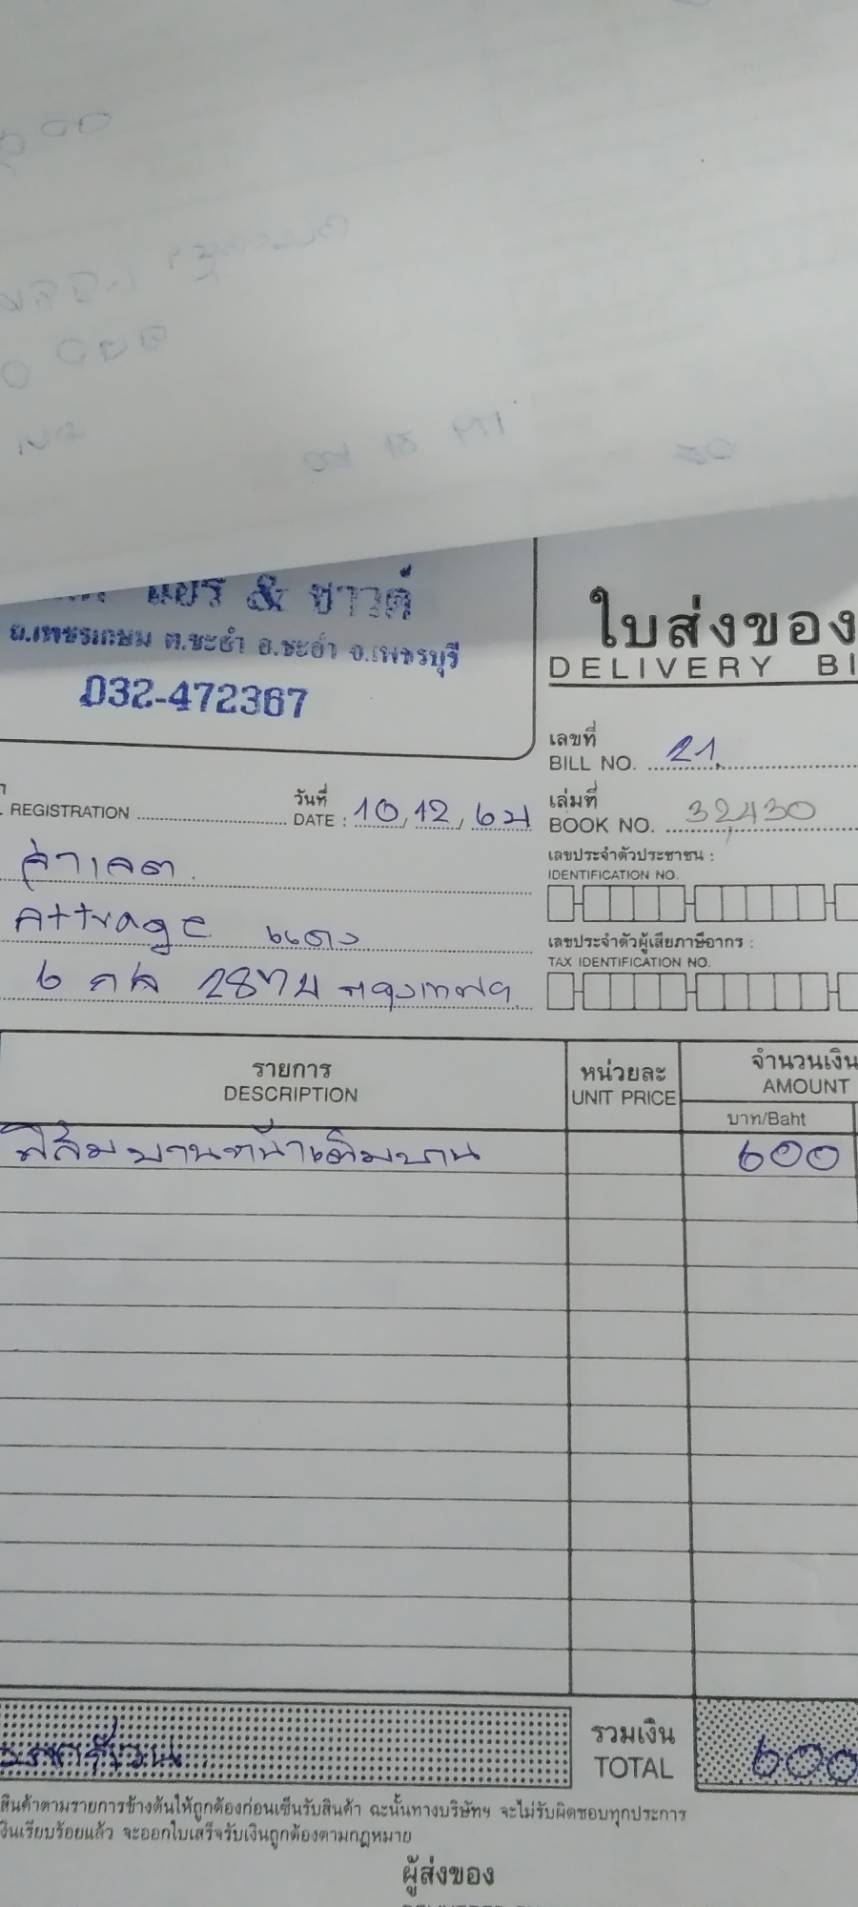 แอร์ & ซาวด์
ถ.เพชรเกษม ต.ชะอำ อ.ชะอำ จ.เพชรบุรี
032-472367
ใบส่งของ
DELIVERY BI
เลขที่
BILL NO. 21
เล่มที่
BOOK NO. 32430
REGISTRATION
วันที่
DATE : 10, 12, 62
เลขประจำตัวประชาชน :
IDENTIFICATION NO.
เลขประจำตัวผู้เสียภาษีอากร :
TAX IDENTIFICATION NO.
Attrage แดง
6 กฬ กรุงเทพฯ
รายการ
DESCRIPTION
หน่วยละ
UNIT PRICE
จำนวนเงิน
AMOUNT
บาท/Baht
ฟิล์มบานหน้าเต็มบาน 600
รวมเงิน
TOTAL
600
สินค้าตามรายการข้างต้นให้ถูกต้องก่อนเซ็นรับสินค้า ฉะนั้นทางบริษัทฯ จะไม่รับผิดชอบทุกประการ
งินเรียบร้อยแล้ว จะออกใบเสร็จรับเงินถูกต้องตามกฎหมาย
ผู้ส่งของ